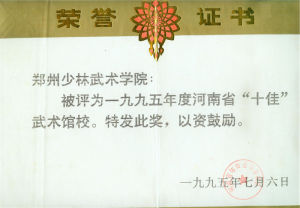 荣誉 证书
郑州少林武术学院：
被评为一九九五年度河南省“十佳”
武术馆校。特发此奖，以资鼓励。
一九九五年七月六日